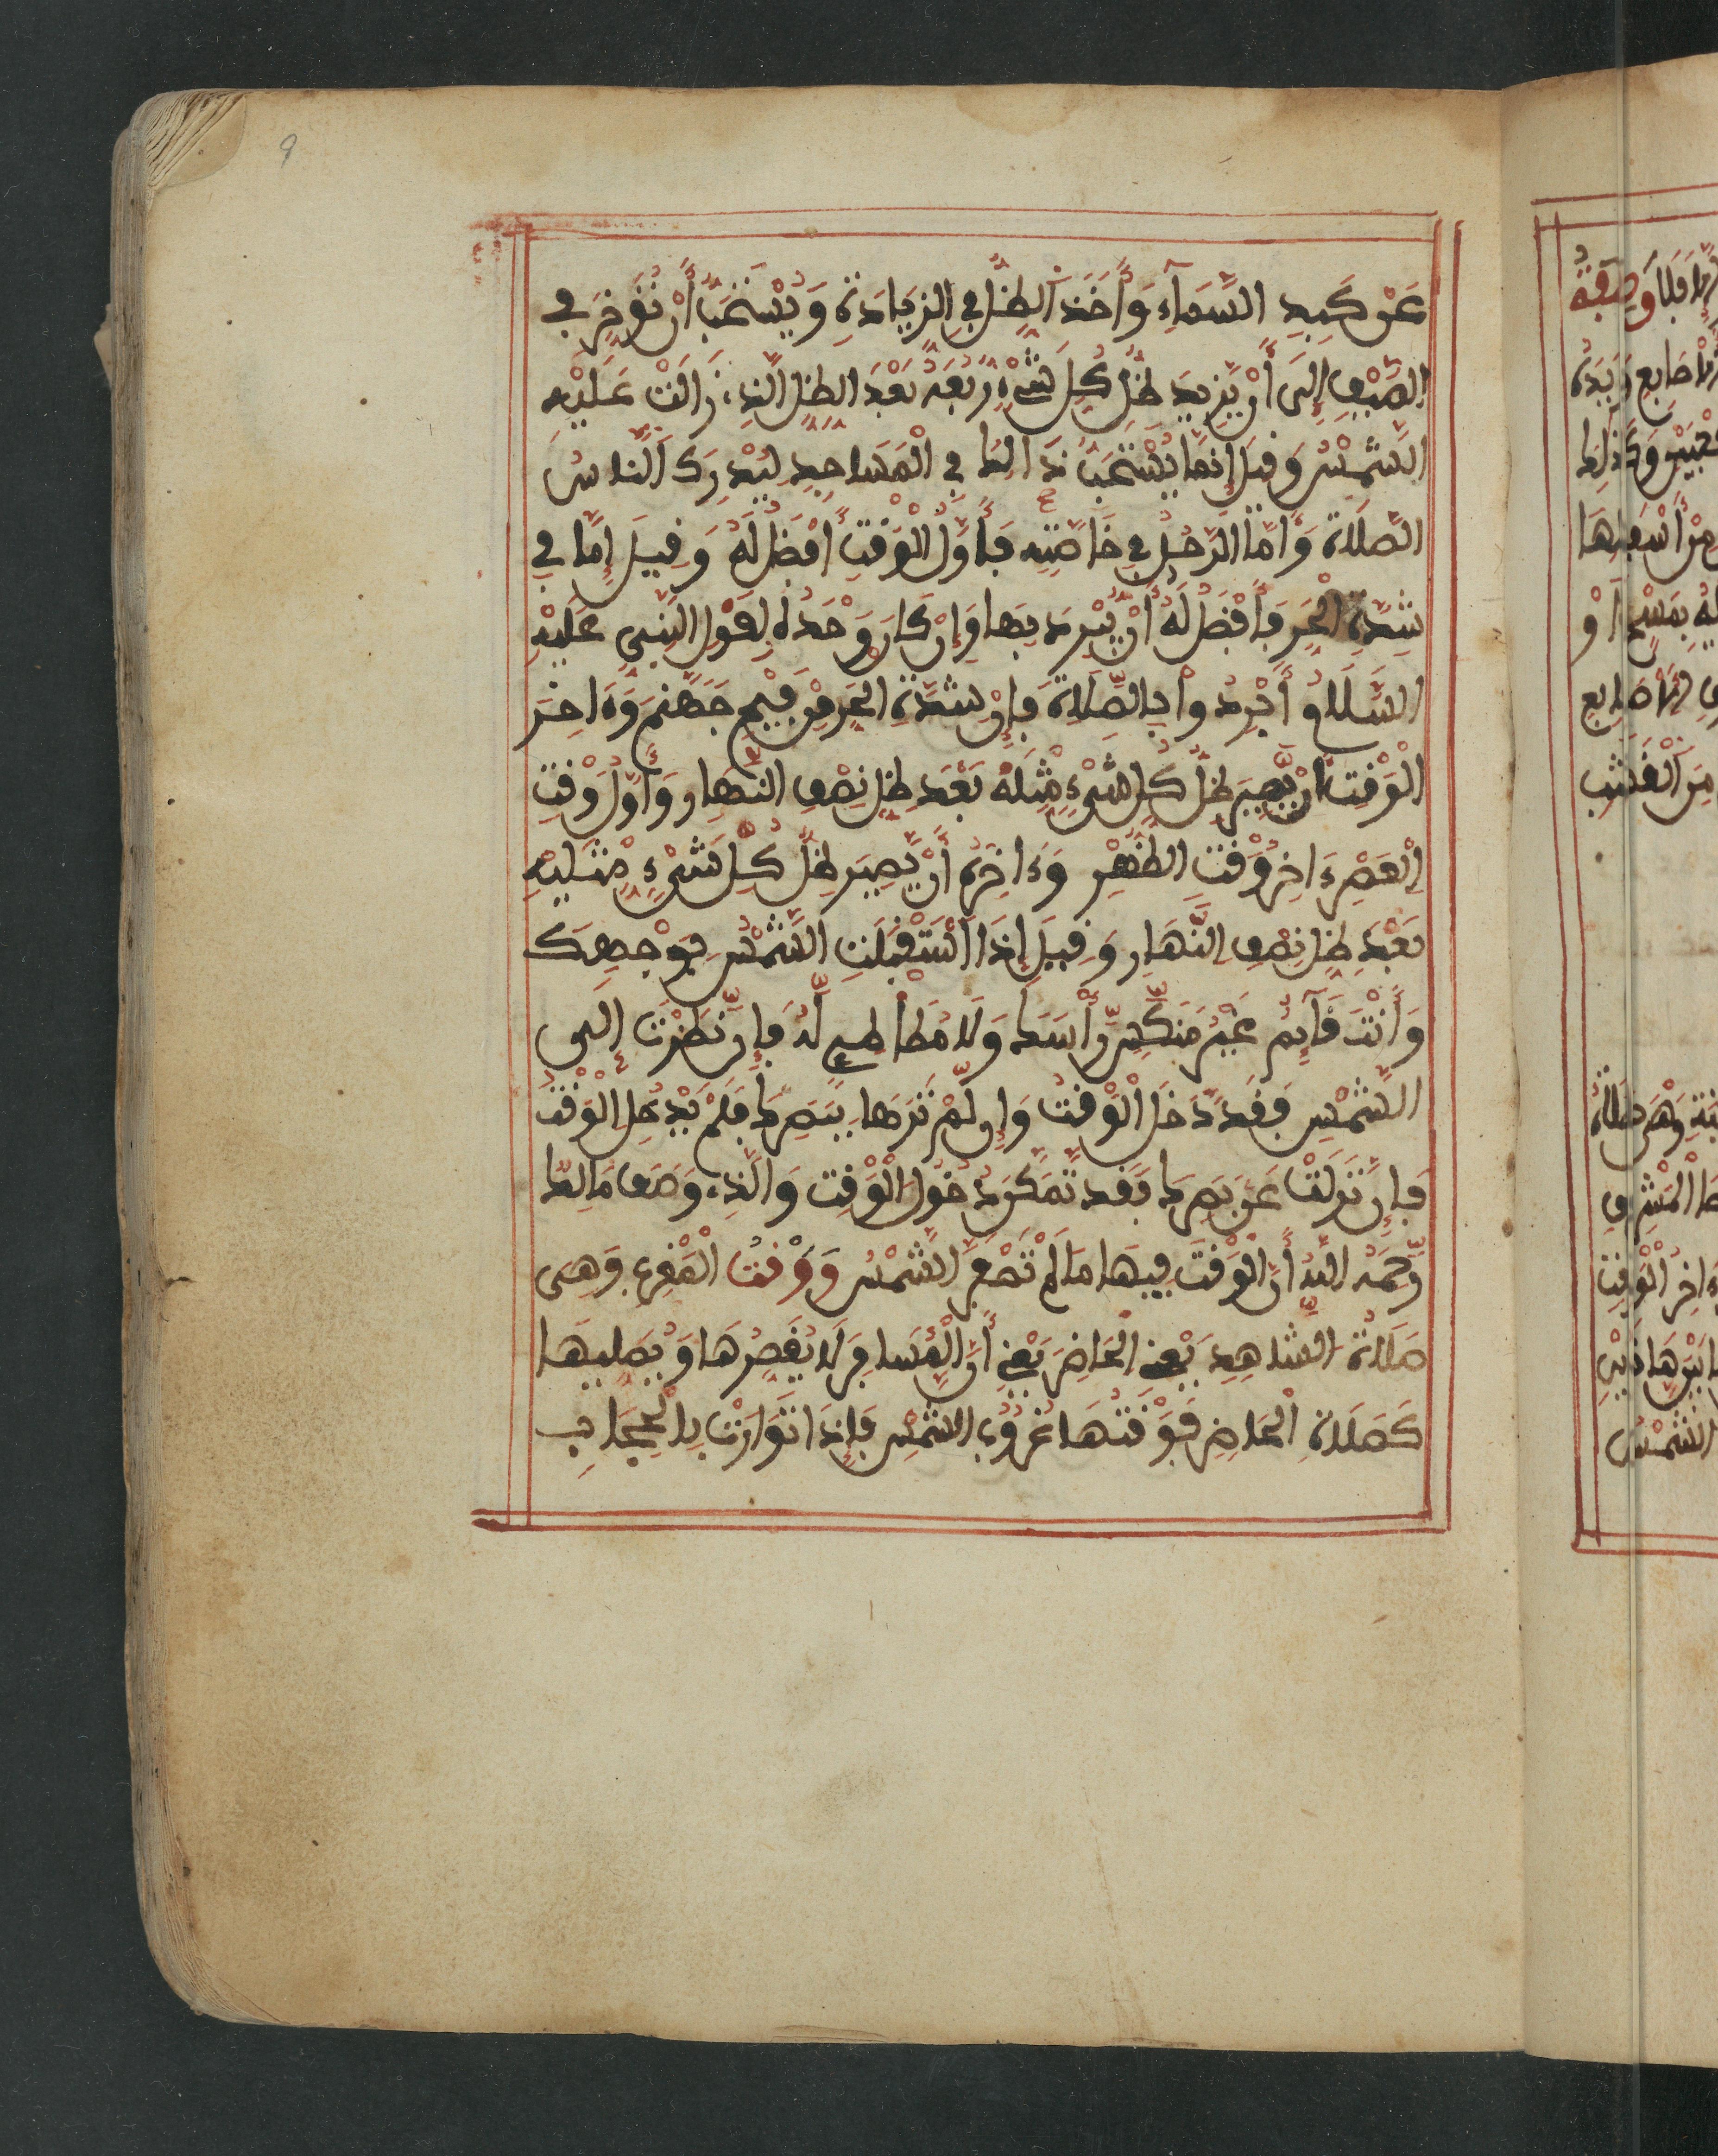 عَن كَبِدِ السَّمَآءِ وَأَخَذَ الظِّلُّ فِي الزِيَادَةِ وَيُسْتَحَبُّ أَنْ تُؤَخَّرَ فِي
الصَّيْفِ إِلَى أَنْ يَّزِيدَ ظِلُّ كُلِّ شَيْءٍ رُبُعَهُ بَعْدَ الظِّلِّ الَّذِي زَالَتْ عَلَيْهِ
الشَّمْسُ وَقِيلَ إِنَّمَا يُسْتَحَبُّ ذَالِكَ فِي الْمَسَاجِدِ لِيُدْرِكَ النَّاسُ
الصَّلَاةَ وَأَمَّا الرَّجُلُ فِي خَاصَّتِهِ فَأَوَّلُ الْوَقْتِ أَفْضَلُ لَهُ وَقِيلَ إِمَّا فِي
شِدَّةِ الْحَرِّ فَأَفْضَلُ لَهُ أَنْ يُّبْرِدَ بِهَا وَإِنْ كَانَ وَحْدَهُ لِقَوْلِ النَّبِيِّ عَلَيْهِ
السَّلَامُ أَبْرِدُواْ بِالصَّلَاةِ فَإِنَّ شِدَّةَ الْحَرِّ مِنْ فَيْحِ جَهَنَّمَ وَءَاخِرُ
الْوَقْتِ أَنْ يَّصِيرَ ظِلُّ كُلِّ شَيْءٍ مِّثْلَهُ بَعْدَ ظِلِّ نِصْفِ النَّهَارِ وَأَوَّلُ وَقْتِ
الْعَصْرِ ءَاخِرُ وَقْتِ الظُّهْرِ وَءَاخِرُهُ أَنْ يَّصِيرَ ظِلُّ كُلِّ شَيْءٍ مِّثْلَيْهِ
بَعْدَ ظِلِّ نِصْفِ النَّهَارِ وَقِيلَ إِذَا اسْتَقْبَلْتَ الشَّمْسَ بِوَجْهِكَ
وَأَنْتَ قَآئِمٌ غَيْرُ مُنَكِّسٍ رَّأْسَكَ وَلَا مُطَأْطِئٍ لَّهُ فَإِن نَّظَرْتَ إِلَى
الشَّمْسِ فَقَد دَّخَلَ الْوَقْتُ وَإِن لَّمْ تَرَهَا بِبَصَرِكَ فَلَمْ يَدْخُلِ الْوَقْتُ
فَإِن نَزَلَتْ عَن بَصَرِكَ فَقَد تَّمَكَّنَ دُخُولُ الْوَقْتِ وَالَّذِي وَصَفَ مَالِكٌ
رَّحِمَهُ اللَّهُ أَنَّ الْوَقْتَ فِيهَا مَا لَمْ تَصْفَرَّ الشَّمْسُ وَوَقْتُ الْمَغْرِبِ وَهِيَ
صَلَاةُ الشَّاهِدِ يَعْنِي الْحَاضِرَ يَعْنِي أَنَّ الْمُسَافِرَ لَا يَقْصُرُهَا وَيُصَلِّيهَا
كَصَلَاةِ الْحَاضِرِ فَوَقْتُهَا غُرُوبُ الشَّمْسِ فَإِذَا تَوَارَتْ بِالْحِجَابِ